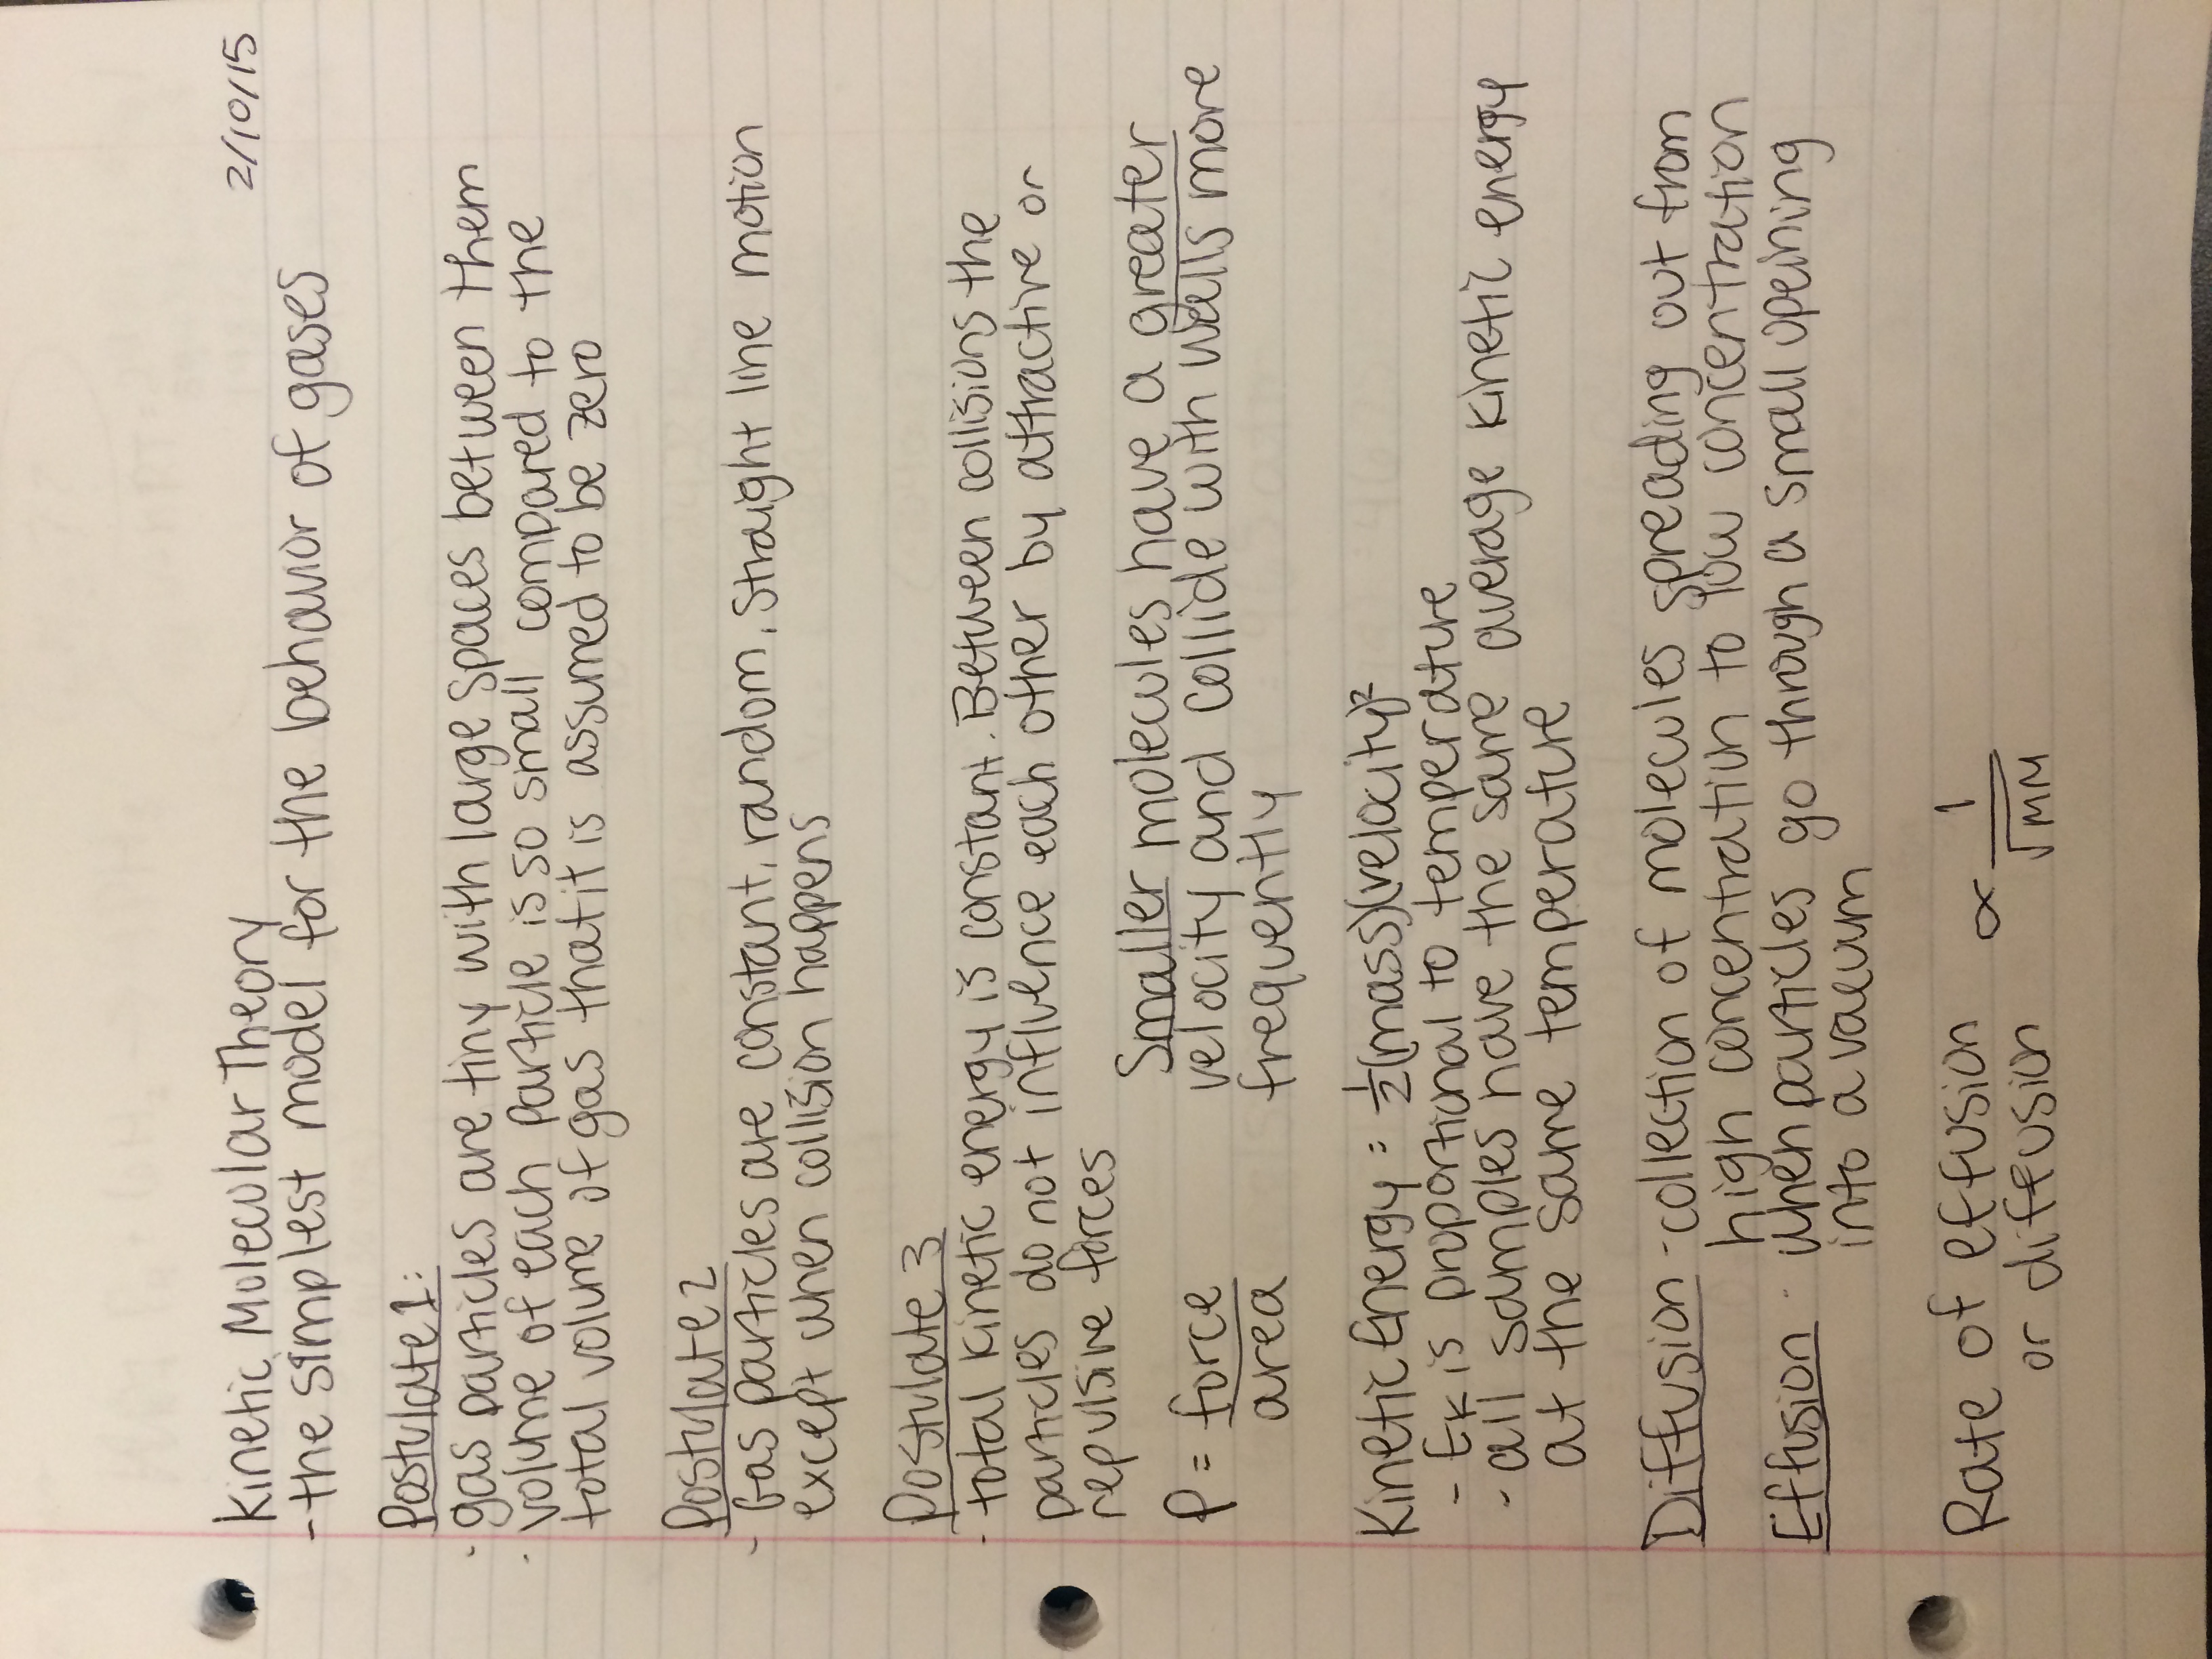 2/10/15
Kinetic Molecular Theory
- the simplest model for the behavior of gases
Postulate 1:
- gas particles are tiny with large spaces between them
- volume of each particle is so small compared to the
total volume of gas that it is assumed to be zero
Postulate 2
- Gas particles are constant, random, straight line motion
except when collision happens
Postulate 3
- total kinetic energy is constant. Between collisions the
particles do not influence each other by attractive or
repulsive forces
P = force
area
Smaller molecules have a greater
velocity and collide with walls more
frequently
Kinetic Energy = ½(mass)(velocity)²
- Ek is proportional to temperature
- all samples have the same average kinetic energy
at the same temperature
Diffusion - collection of molecules spreading out from
high concentration to low concentration
Effusion - when particles go through a small opening
into a vacuum
Rate of effusion ∝ 1
or diffusion √MM